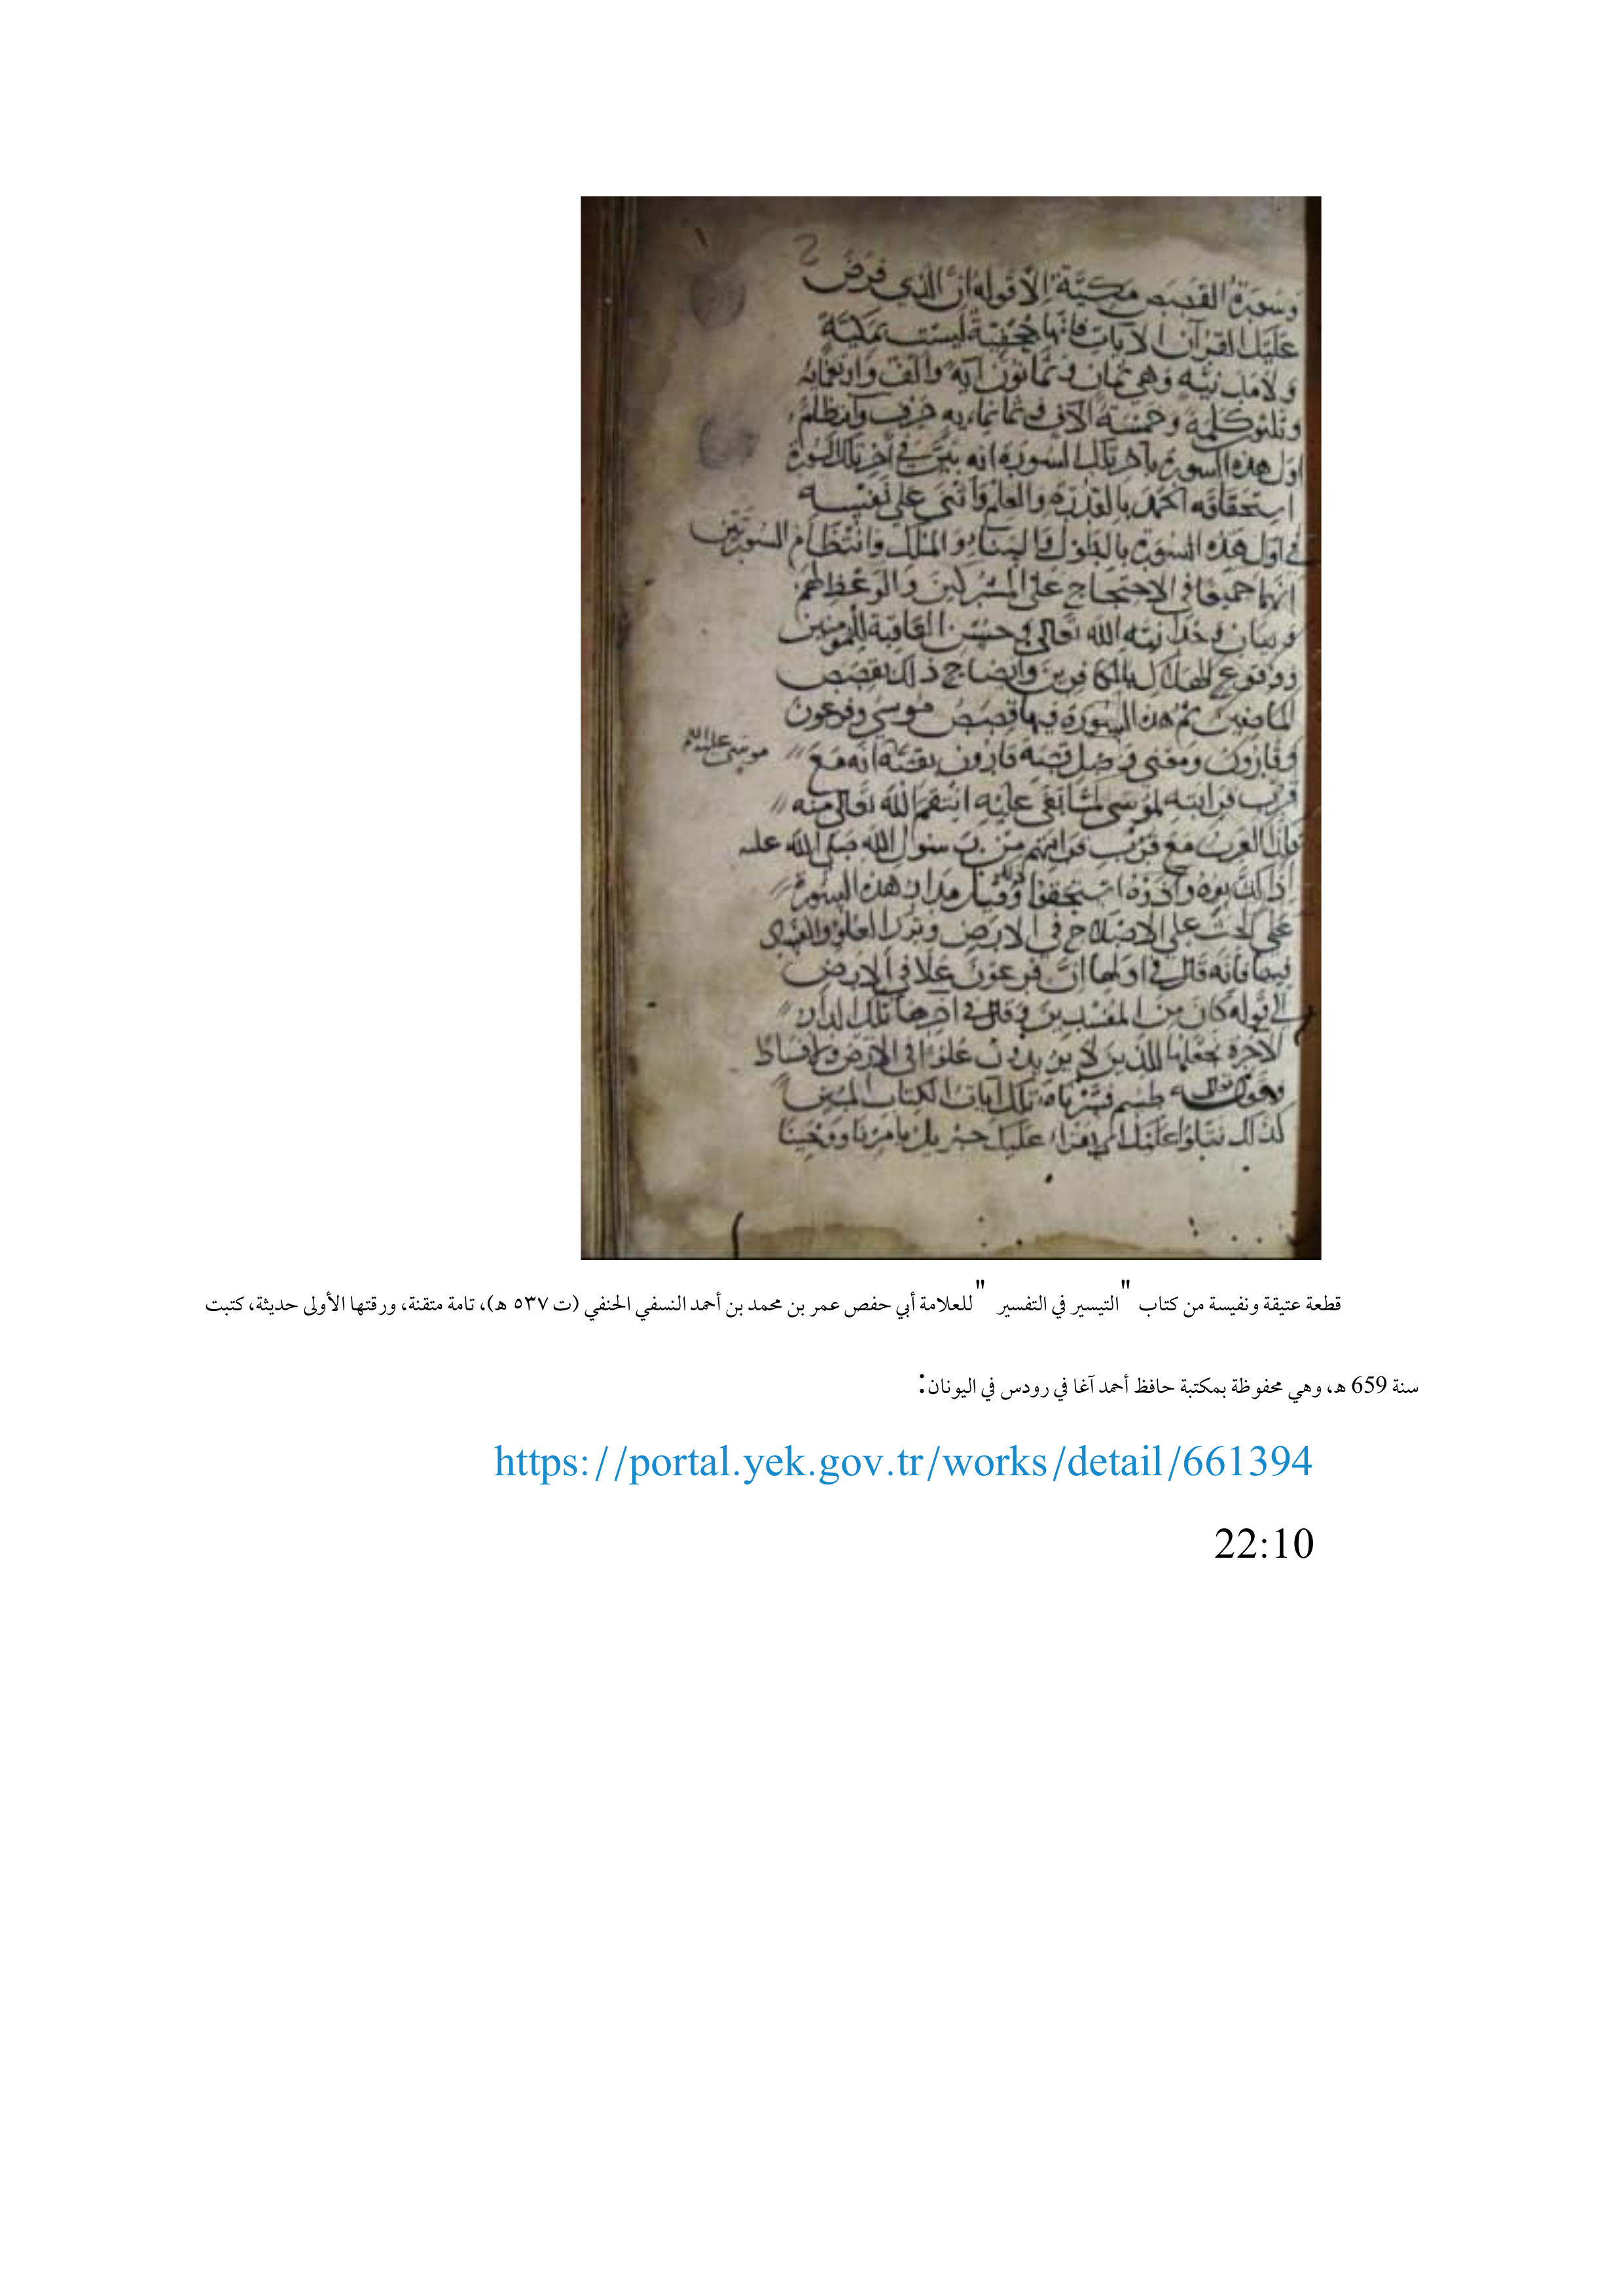 وسورة القصص مكية إلا قوله إن الذي فرض
عليك القرآن الآيات فإنها جحفية ليست بمكية
ولا مدنية وهي ثمان وثمانون آية وألف وأربعمائة
وثلثون كلمة وخمسة آلاف وثمانمائة حرف وانتظام
أول هذه السورة بآخر تلك السورة انه بين في آخر تلك السورة
استحقاقه الحمد بالقدرة والعلم وأثنى على نفسه
في أول هذه السورة والملك وانتظام السورتين
انهما جميعا في الاحتجاج على المشركين والوعظ لهم
وبيان وحدانية الله تعالى وحسن العاقبة للمؤمنين
ووقوع الهلاك بالكافرين وايضاح ذلك بقصص
الماضين ثم هذه السورة فيها قصص موسى وفرعون
وقارون ومعنى وصل قصة قارون بقصة انه مع
موسى عليه السلام
قرب قرابته لموسى لما بغى عليه انتقم الله تعالى منه
فإذا العرب مع قرب قرابتهم من رسول الله صلى الله عليه
إذا كذبوه وآذوه استحقوا ذلك وقيل مدار هذه السورة
على الحث على الإصلاح في الأرض وترك العلو والفساد
فيها فإنه قال في أولها إن فرعون علا في الأرض
إلى قوله كان من المفسدين وقال في آخرها تلك الدار
الآخرة نجعلها للذين لا يريدون علوا في الأرض ولا فسادا
وقوله تعالى طسم فسرناه تلك آيات الكتاب المبين
كذلك نتلوا عليك أي يقرأ عليك جبريل بأمرنا ووحينا
قطعة عتيقة ونفيسة من كتاب "التيسير في التفسير" للعلامة أبي حفص عمر بن محمد بن أحمد النسفي الحنفي (ت ٥٣٧ هـ)، تامة متقنة، ورقتها الأولى حديثة، كتبت
سنة 659 هـ، وهي محفوظة بمكتبة حافظ أحمد آغا في رودس في اليونان:
https://portal.yek.gov.tr/works/detail/661394
22:10